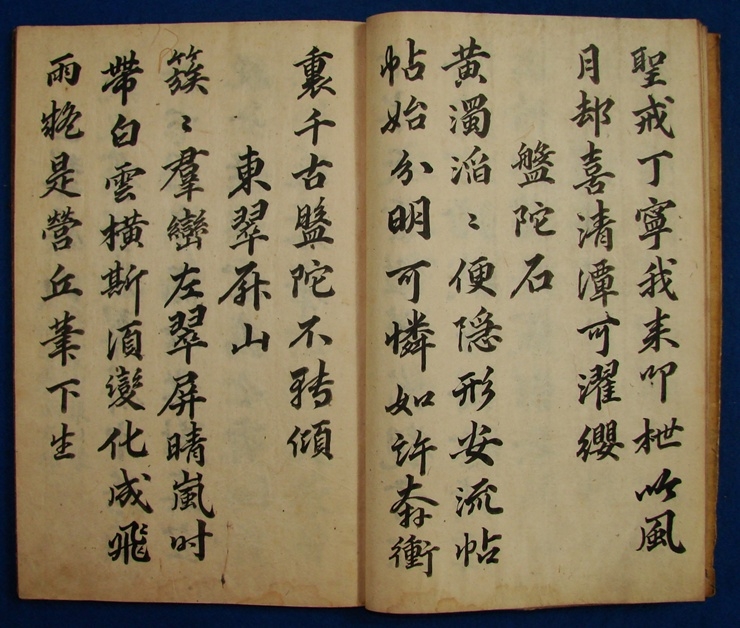 聖戒丁寧我来叩枻吟風
月却喜清潭可濯纓
盤陀石
黄濁滔〻便隠形安流帖
帖始分明可憐如許奔衝
裏千古盤陀不轉傾
東翠屏山
簇〻羣巒左翠屏晴嵐时
帶白雲横斯須變化成飛
雨糚是營丘筆下生